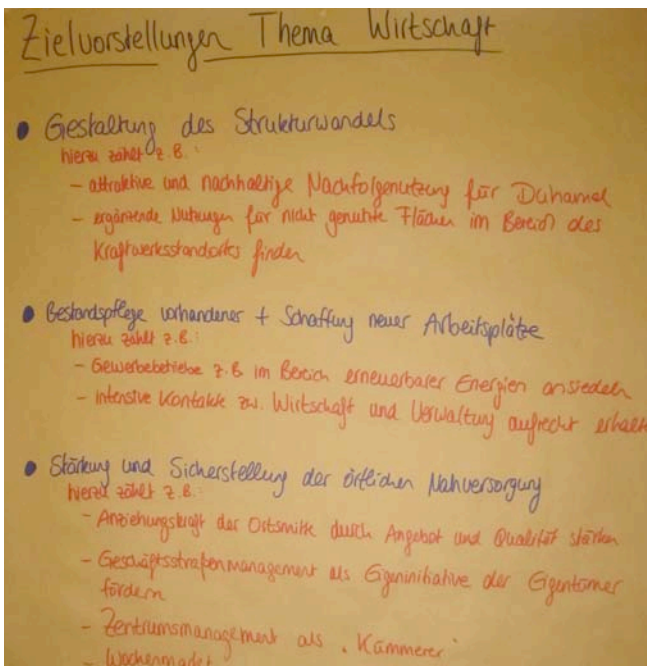 Zielvorstellungen Thema Wirtschaft
• Gestaltung des Strukturwandels
hierzu zählt z.B.:
- attraktive und nachhaltige Nachfolgenutzung für Duhamel
- ergänzende Nutzungen für nicht genutzte Flächen im Bereich des
Kraftwerksstandorts finden
• Bestandspflege vorhandener + Schaffung neuer Arbeitsplätze
hierzu zählt z.B.:
- Gewerbebetriebe z.B im Bereich erneuerbarer Energien ansiedeln
- intensive Kontakte zw. Wirtschaft und Verwaltung aufrecht erhalt
• Stärkung und Sicherstellung der örtlichen Nahversorgung
hierzu zählt z.B.:
- Anziehungskraft der Ortsmitte durch Angebot und Qualität stärken
- Geschäftsstraßenmanagement als Eigeninitiative der Eigentümer
fördern
- Zentrumsmanagement als "Kümmerer"
- Wochenmarkt